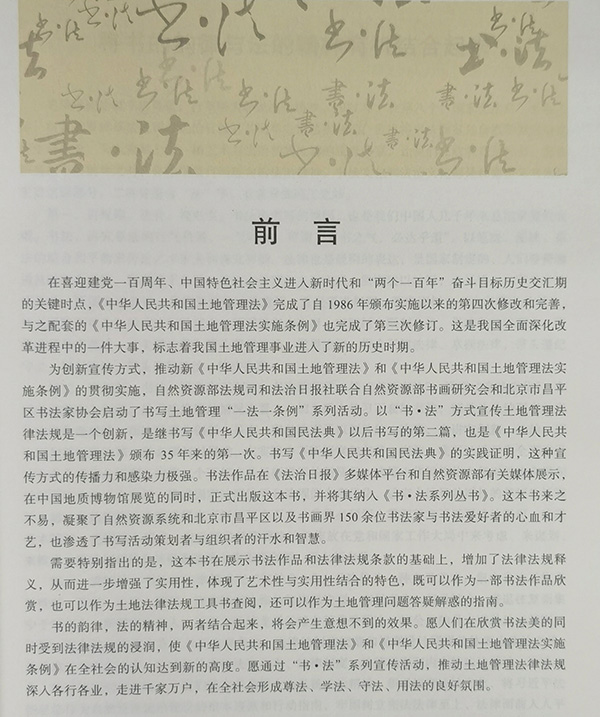 书·法
書·法
前 言
在喜迎建党一百周年、中国特色社会主义进入新时代和“两个一百年”奋斗目标历史交汇期
的关键时点，《中华人民共和国土地管理法》完成了自 1986 年颁布实施以来的第四次修改和完善，
与之配套的《中华人民共和国土地管理法实施条例》也完成了第三次修订。这是我国全面深化改
革进程中的一件大事，标志着我国土地管理事业进入了新的历史时期。
为创新宣传方式，推动新《中华人民共和国土地管理法》和《中华人民共和国土地管理法实
施条例》的贯彻实施，自然资源部法规司和法治日报社联合自然资源部书画研究会和北京市昌平
区书法家协会启动了书写土地管理“一法一条例”系列活动。以“书·法”方式宣传土地管理法
律法规是一个创新，是继书写《中华人民共和国民法典》以后书写的第二篇，也是《中华人民共
和国土地管理法》颁布 35 年来的第一次。书写《中华人民共和国民法典》的实践证明，这种宣
传方式的传播力和感染力极强。书法作品在《法治日报》多媒体平台和自然资源部有关媒体展示，
在中国地质博物馆展览的同时，正式出版这本书，并将其纳入《书·法系列丛书》。这本书来之
不易，凝聚了自然资源系统和北京市昌平区以及书画界 150 余位书法家与书法爱好者的心血和才
艺，也渗透了书写活动策划者与组织者的汗水和智慧。
需要特别指出的是，这本书在展示书法作品和法律法规条款的基础上，增加了法律法规释
义，从而进一步增强了实用性，体现了艺术性与实用性结合的特色，既可以作为一部书法作品欣
赏，也可以作为土地法律法规工具书查阅，还可以作为土地管理问题答疑解惑的指南。
书的韵律，法的精神，两者结合起来，将会产生意想不到的效果。愿人们在欣赏书法美的同
时受到法律法规的浸润，使《中华人民共和国土地管理法》和《中华人民共和国土地管理法实施
条例》在全社会的认知达到新的高度。愿通过“书·法”系列宣传活动，推动土地管理法律法规
深入各行各业，走进千家万户，在全社会形成尊法、学法、守法、用法的良好氛围。